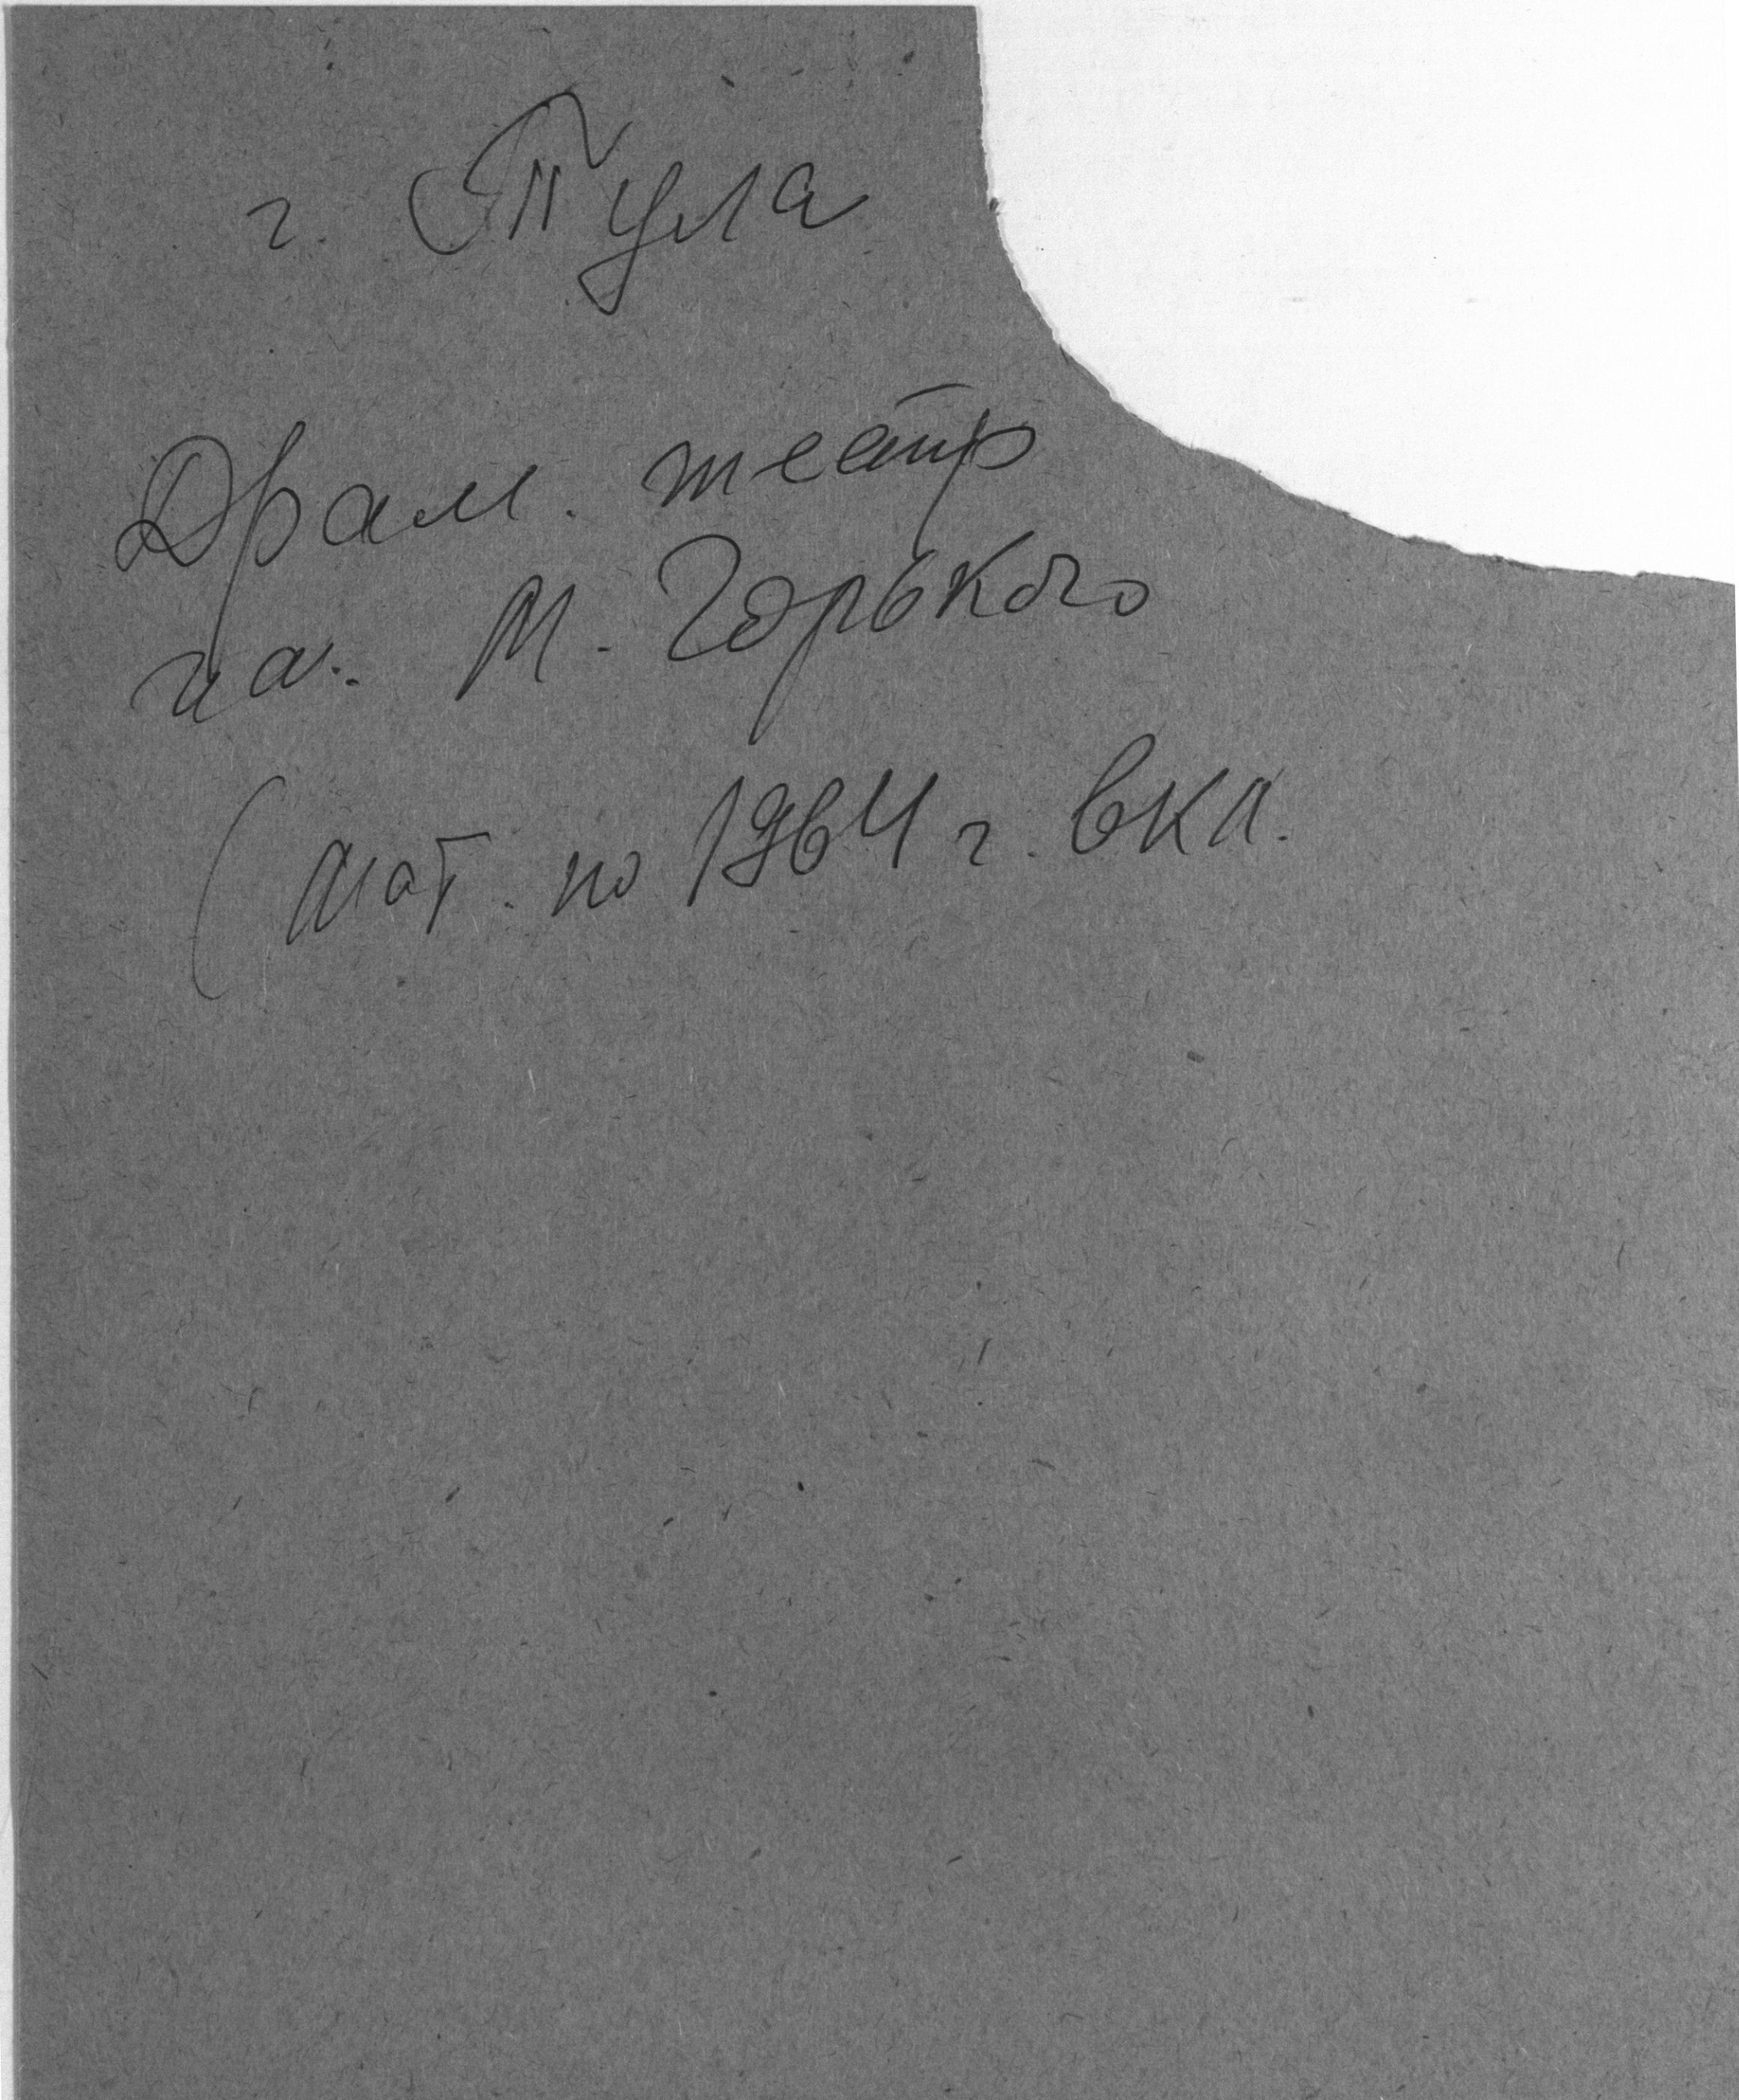 г. Тула
Драм. театр
им. М. Горького
(мат. по 1964 г. вкл.